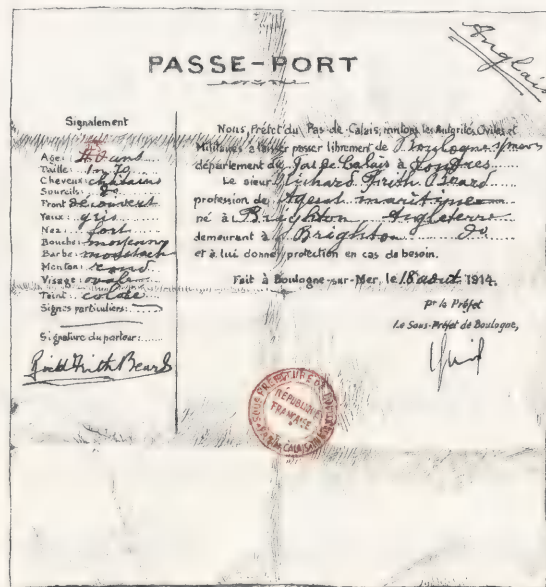 Anglais
PASSE-PORT
Signalement
Age: 40 ans
Taille: 1m 70
Cheveux: châtains
Sourcils: do
Front découvert
Yeux: gris
Nez: fort
Bouche: moyenne
Barbe: moustach
Menton: rond
Visage: ovale
Teint: coloré
Signes particuliers:
Signature du porteur:
Frith Beard
Nous, Préfet du Pas-de-Calais, invitons les Autorités Civiles et
Militaires à laisser passer librement de Boulogne s/mer
département du Pas de Calais à Londres
Le sieur Richard Frith Beard
profession de Agent maritime
né à Brighton Angleterre
demeurant à Brighton do
et à lui donner protection en cas de besoin.
Fait à Boulogne-sur-Mer, le 18 août 1914.
pr le Préfet
Le Sous-Préfet de Boulogne,
SOUS-PRÉFECTURE DE BOULOGNE
RÉPUBLIQUE
FRANÇAISE